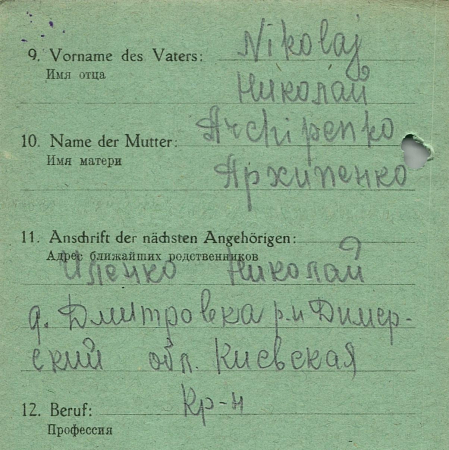 9. Vorname des Vaters: Nikolaj
Имя отца
Николай
10. Name der Mutter: Archipenko
Имя матери
Архипенко
11. Anschrift der nächsten Angehörigen:
Адрес ближайших родственников
Иленко Николай
д. Дмитровка р.н Димер-
ский обл. Киевская
12. Beruf: Кр-н
Профессия